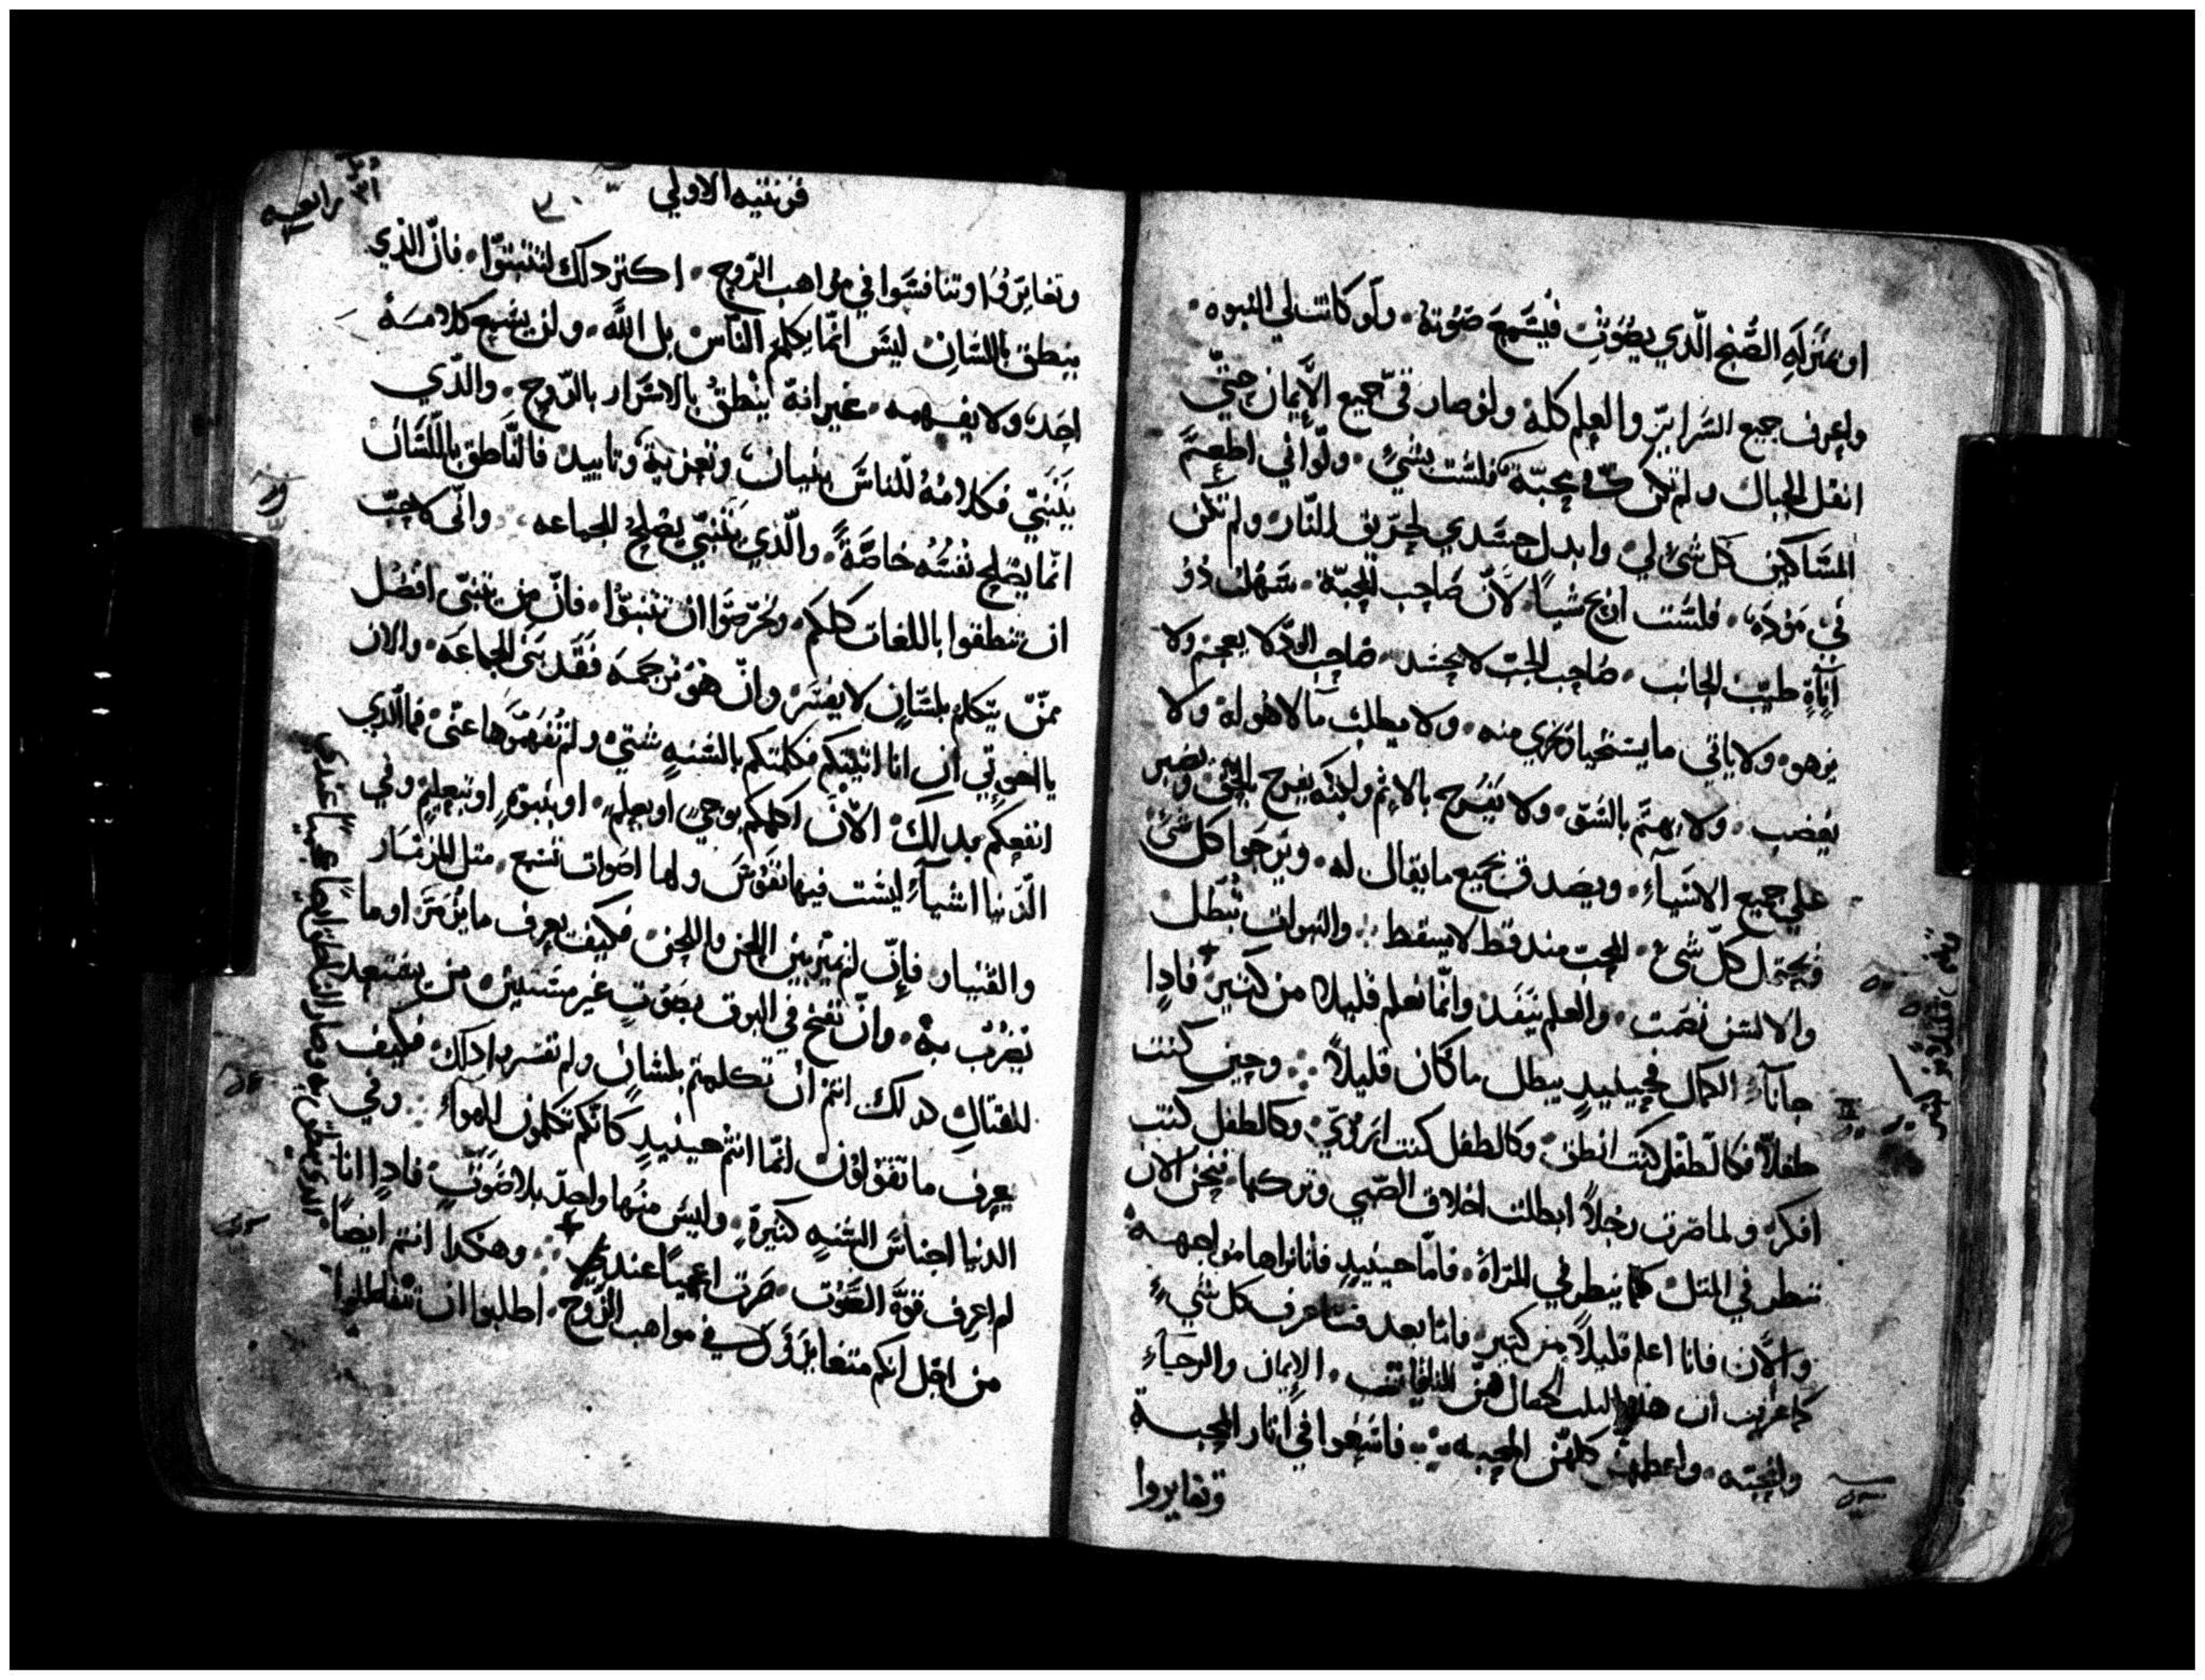 او بمنزله الصنج الذي يصوت فيسمع صوته ولو كانت لي النبوه
واعرف جميع السراير والعلم كله ولو صار فيّ جميع الايمان حتي
انقل الجبال ولم تكن فيّ محبة فلست بشي ولو اني اطعم
المساكين كل شي لي وابدل جسدي لحريق النار ولم تكن
في موده فلست اربح شيا لان صاحب المحبة سهل ذو
اناةٍ طيب الجانب صاحب الحب لا يحسد صاحب الود لا يعجز ولا
يزهو ولا ياتي ما يستحيا منه ولا يطلب ما لا هو له ولا
يغضب ولا يهتم بالسو ولا يفرح بالاثم ولكنه يفرح بالحق ويصبر
علي جميع الاشيآء ويصدق بجميع ما يقال له ويرجوا كل شي
ويحتمل كل شي المحب منذ قط لا يسقط والنبوات تبطل
والالسن تصمت والعلم ينفد وانما نعلم قليلا من كثير فادا
جاآء الكمال فحينيدٍ يبطل ما كان قليلاً وحين كنت
طفلاً فكالطفل كنت انطق وكالطفل كنت اتروي وكالطفل كنت
افكر ولما صرت رجلاً ابطلت اخلاق الصبي وتركها فنحن الان
ننطر في المتل كما ينطر في المرآه فاما حينيدٍ فانا نراها مواجهه
والآن فانا اعلم قليلاً من كتير فاما بعد فساعرف كل شيءٍ
كما عرفت ان هذه التلت الخصال هن الباقيات الايمان والرجآء
والمحبه واعظمهن كلهن المحبه فاسعوا في اثار المحبة
وتغايروا
تعلم قليلاً من كتير
قرنتيه الاولي
رابعه
وتغايروا وتنافسوا في مواهب الروح اكتر دلك لتتنبوا فان الذي
ينطق باللسان ليس انما يكلم الناس بل الله ولن يسمع كلامه
احد ولا يفهمه غير انه ينطق بالاسرار بالروح والذي
يتنبي فكلامه للناس بنيان وتعزية وتاييد فالناطق باللسان
انما يصلح نفسه خاصةً والذي يتنبي يصلح الجماعه واني لاحب
ان تنطقوا باللغات كلكم وتحرصوا ان تتنبوا فان من تنبي افضل
ممن يتكلم بلسانٍ لا يفسر وان هو ترجمه فقد بني الجماعه والان
يا اخوتي ان انا اتيتكم فكلمتكم بالسنهٍ شتي ولم تفهموها عني فما الذي
انفعكم بدلك الان اكلمكم بوحيٍ او بعلمٍ او بنبوةٍ او بتعليمٍ وفي
الدنيا اشيآء ليست فيها نفوس ولها اصوات تسمع متل المزمار
والقيتار فان لم يميز بين اللحن واللحن فكيف يعرف ما يزمر او ما
يضرب به وان نفخ في البوق بصوتٍ غير مستبين من يستعد
للقتال كدلك انتم ان تكلمتم بلسانٍ ولم تفسروا دلك فكيف
يعرف ما تقولون انما انتم حينيدٍ كانكم تكلمون الهواء وفي
الدنيا اجناس السنهٍ كثيرةٍ وليس منها واحد بلا صوتٍ فادا انا
لم اعرف قوة الصوت صرت اعجمياً عندي وهكدا انتم ايضاً
من اجل انكم متغايرون في مواهب الروح اطلبوا ان تتفاضلوا
الذي ينطق به وصار الناطق ايضاً اعجمياً عندي